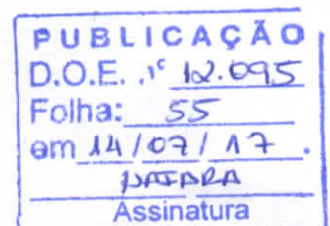 PUBLICAÇÃO
D.O.E. Nº 12.095
Folha: 55
em 14/07/17.
Assinatura